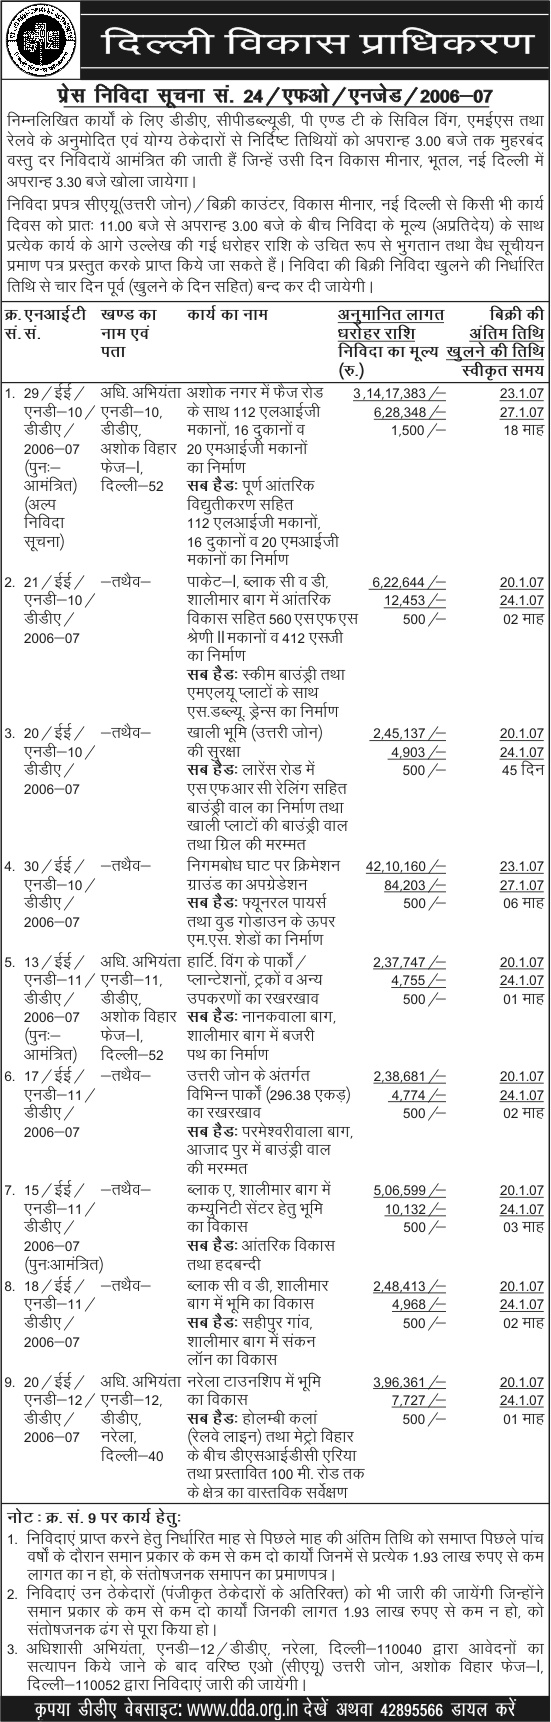 दिल्ली विकास प्राधिकरण
प्रेस निविदा सूचना सं. 24/एफओ/एनजेड/2006–07
निम्नलिखित कार्यों के लिए डीडीए, सीपीडब्ल्यूडी, पी एण्ड टी के सिविल विंग, एमईएस तथा
रेलवे के अनुमोदित एवं योग्य ठेकेदारों से निर्दिष्ट तिथियों को अपरान्ह 3.00 बजे तक मुहरबंद
वस्तु दर निविदायें आमंत्रित की जाती हैं जिन्हें उसी दिन विकास मीनार, भूतल, नई दिल्ली में
अपरान्ह 3.30 बजे खोला जायेगा।
निविदा प्रपत्र सीएयू(उत्तरी जोन)/बिक्री काउंटर, विकास मीनार, नई दिल्ली से किसी भी कार्य
दिवस को प्रातः 11.00 बजे से अपरान्ह 3.00 बजे के बीच निविदा के मूल्य (अप्रतिदेय) के साथ
प्रत्येक कार्य के आगे उल्लेख की गई धरोहर राशि के उचित रूप से भुगतान तथा वैध सूचीयन
प्रमाण पत्र प्रस्तुत करके प्राप्त किये जा सकते हैं। निविदा की बिक्री निविदा खुलने की निर्धारित
तिथि से चार दिन पूर्व (खुलने के दिन सहित) बन्द कर दी जायेगी।
क्र. एनआईटी खण्ड का कार्य का नाम अनुमानित लागत बिक्री की
सं. सं. नाम एवं धरोहर राशि अंतिम तिथि
पता निविदा का मूल्य खुलने की तिथि
(रु.) स्वीकृत समय
1. 29/ईई/ अधि. अभियंता अशोक नगर में फैज रोड 3,14,17,383/– 23.1.07
एनडी–10/ एनडी–10, के साथ 112 एलआईजी 6,28,348/– 27.1.07
डीडीए/ डीडीए, मकानों, 16 दुकानों व 1,500/– 18 माह
2006–07 अशोक विहार 20 एमआईजी मकानों
(पुनः– फेज–I, का निर्माण
आमंत्रित) दिल्ली–52 सब हैडः पूर्ण आंतरिक
(अल्प विद्युतीकरण सहित
निविदा 112 एलआईजी मकानों,
सूचना) 16 दुकानों व 20 एमआईजी
मकानों का निर्माण
2. 21/ईई/ –तथैव– पाकेट–I, ब्लाक सी व डी, 6,22,644/– 20.1.07
एनडी–10/ शालीमार बाग में आंतरिक 12,453/– 24.1.07
डीडीए/ विकास सहित 560 एस एफ एस 500/– 02 माह
2006–07 श्रेणी II मकानों व 412 एसजी
का निर्माण
सब हैडः स्कीम बाउंड्री तथा
एमएलयू प्लाटों के साथ
एस.डब्ल्यू. ड्रेन्स का निर्माण
3. 20/ईई/ –तथैव– खाली भूमि (उत्तरी जोन) 2,45,137/– 20.1.07
एनडी–10/ की सुरक्षा 4,903/– 24.1.07
डीडीए/ सब हैडः लारेंस रोड में 500/– 45 दिन
2006–07 एस एफ आर सी रेलिंग सहित
बाउंड्री वाल का निर्माण तथा
खाली प्लाटों की बाउंड्री वाल
तथा ग्रिल की मरम्मत
4. 30/ईई/ –तथैव– निगमबोध घाट पर क्रिमेशन 42,10,160/– 23.1.07
एनडी–10/ ग्राउंड का अपग्रेडेशन 84,203/– 27.1.07
डीडीए/ सब हैडः फ्यूनरल पायर्स 500/– 06 माह
2006–07 तथा वुड गोडाउन के ऊपर
एम.एस. शेडों का निर्माण
5. 13/ईई/ अधि. अभियंता हार्टि. विंग के पार्कों/ 2,37,747/– 20.1.07
एनडी–11/ एनडी–11, प्लान्टेशनों, ट्रकों व अन्य 4,755/– 24.1.07
डीडीए/ डीडीए, उपकरणों का रखरखाव 500/– 01 माह
2006–07 अशोक विहार सब हैडः नानकवाला बाग,
(पुनः– फेज–I, शालीमार बाग में बजरी
आमंत्रित) दिल्ली–52 पथ का निर्माण
6. 17/ईई/ –तथैव– उत्तरी जोन के अंतर्गत 2,38,681/– 20.1.07
एनडी–11/ विभिन्न पार्कों (296.38 एकड़) 4,774/– 24.1.07
डीडीए/ का रखरखाव 500/– 02 माह
2006–07 सब हैडः परमेश्वरीवाला बाग,
आजाद पुर में बाउंड्री वाल
की मरम्मत
7. 15/ईई/ –तथैव– ब्लाक ए, शालीमार बाग में 5,06,599/– 20.1.07
एनडी–11/ कम्युनिटी सेंटर हेतु भूमि 10,132/– 24.1.07
डीडीए/ का विकास 500/– 03 माह
2006–07 सब हैडः आंतरिक विकास
(पुनःआमंत्रित) तथा हदबन्दी
8. 18/ईई/ –तथैव– ब्लाक सी व डी, शालीमार 2,48,413/– 20.1.07
एनडी–11/ बाग में भूमि का विकास 4,968/– 24.1.07
डीडीए/ सब हैडः सहीपुर गांव, 500/– 02 माह
2006–07 शालीमार बाग में संकन
लॉन का विकास
9. 20/ईई/ अधि. अभियंता नरेला टाउनशिप में भूमि 3,96,361/– 20.1.07
एनडी–12/ एनडी–12, का विकास 7,727/– 24.1.07
डीडीए/ डीडीए, सब हैडः होलम्बी कलां 500/– 01 माह
2006–07 नरेला, (रेलवे लाइन) तथा मेट्रो विहार
दिल्ली–40 के बीच डीएसआईडीसी एरिया
तथा प्रस्तावित 100 मी. रोड तक
के क्षेत्र का वास्तविक सर्वेक्षण
नोट : क्र. सं. 9 पर कार्य हेतुः
1. निविदाएं प्राप्त करने हेतु निर्धारित माह से पिछले माह की अंतिम तिथि को समाप्त पिछले पांच
वर्षों के दौरान समान प्रकार के कम से कम दो कार्यों जिनमें से प्रत्येक 1.93 लाख रुपए से कम
लागत का न हो, के संतोषजनक समापन का प्रमाणपत्र।
2. निविदाएं उन ठेकेदारों (पंजीकृत ठेकेदारों के अतिरिक्त) को भी जारी की जायेंगी जिन्होंने
समान प्रकार के कम से कम दो कार्यों जिनकी लागत 1.93 लाख रुपए से कम न हो, को
संतोषजनक ढंग से पूरा किया हो।
3. अधिशासी अभियंता, एनडी–12/डीडीए, नरेला, दिल्ली–110040 द्वारा आवेदनों का
सत्यापन किये जाने के बाद वरिष्ठ एओ (सीएयू) उत्तरी जोन, अशोक विहार फेज–I,
दिल्ली–110052 द्वारा निविदाएं जारी की जायेंगी।
कृपया डीडीए वेबसाइट: www.dda.org.in देखें अथवा 42895566 डायल करें